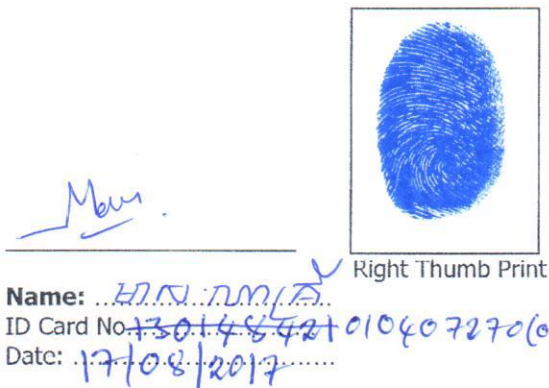 Right Thumb Print
Name:
ID Card No. 130148421 010407270(0
Date: 17/08/2017